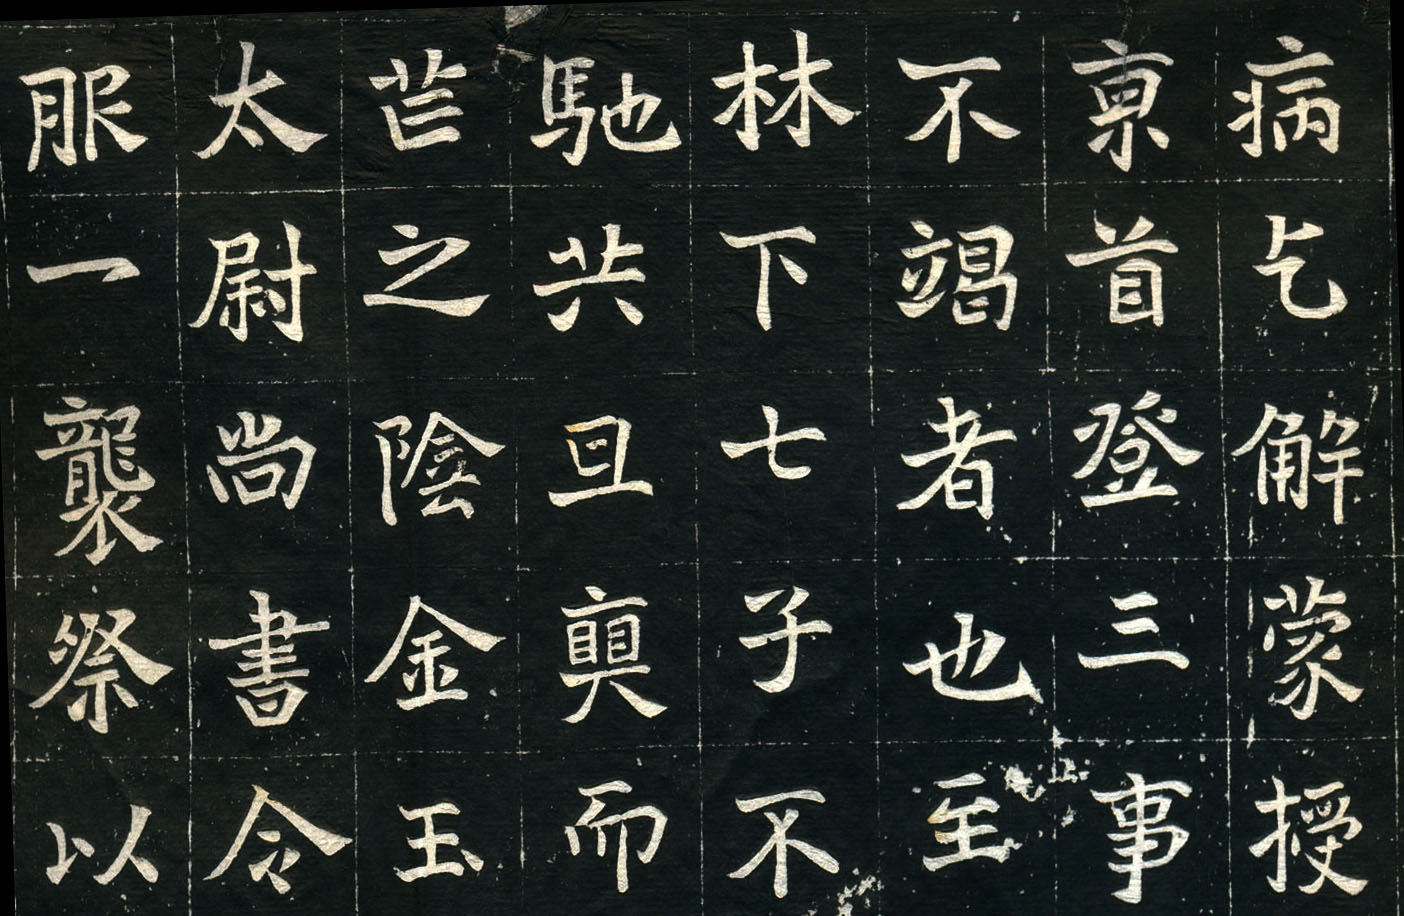 病乞解蒙授
亰首登三事
不竭者也至
林下七子不
馳共旦奭而
芒之陰金玉
太尉尚書令
服一襲祭以